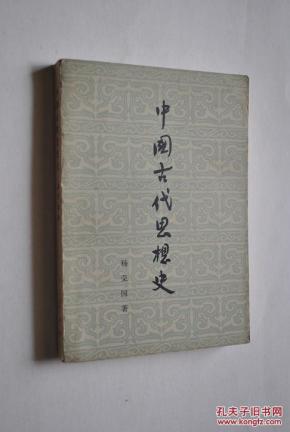 中國古代思想史
杨荣国著
孔夫子旧书网
www.kongfz.com